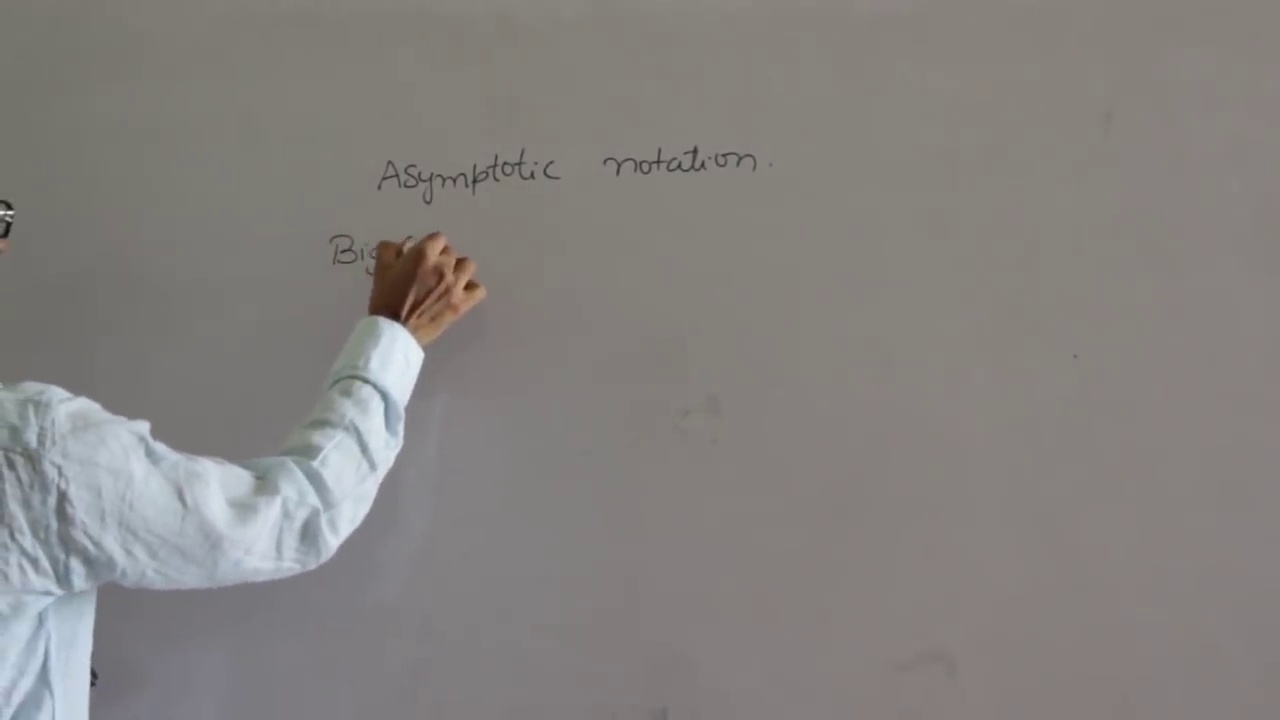 Asymptotic notation.
Big